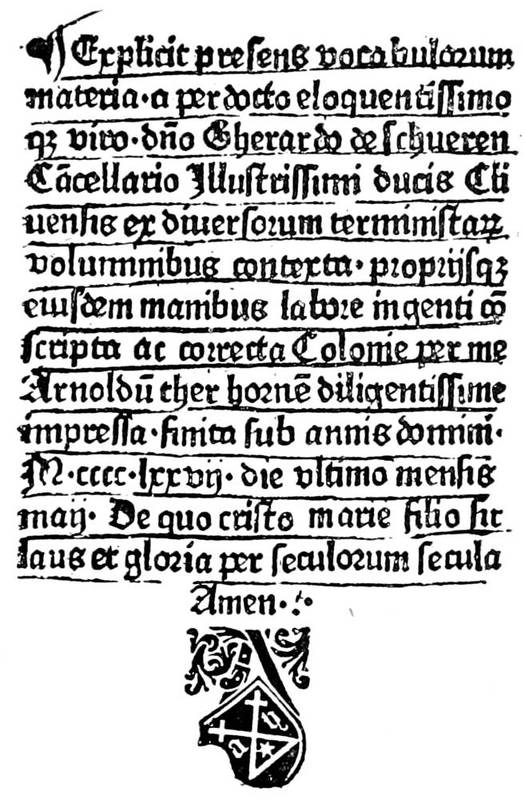 ¶ Explicit presens vocabulorum
materia · a perdocto eloquentissimo
qꝫ viro · dn̄o Gherardo de schueren
Cācellario Illustrissimi ducis Cli
uensis ex diuersorum terministaꝝ
voluminibus contexta · proprijsqꝫ
eiusdem manibus labore ingenti cō
scripta ac correcta Colonie per me
Arnoldū ther hornē diligentissime
impressa · finita sub annis domini ·
M · cccc · lxxvij · die vltimo mensis
maij · De quo cristo marie filio sit
laus et gloria per seculorum secula
Amen · : ·
a